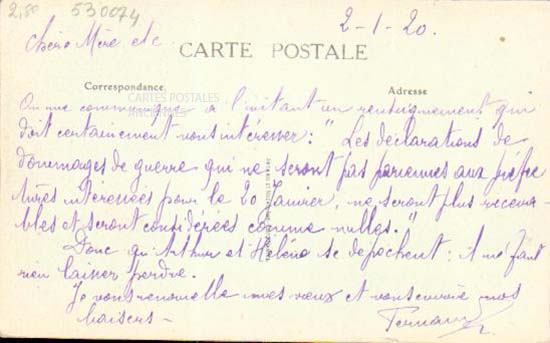 2,80 530074
2-1-20.
Chère Mère etc
CARTE POSTALE
Correspondance Adresse
CARTES POSTALES
ANCIENNES
On me communique à l'instant un renseignement qui
doit certainement vous intéresser : " Les déclarations de
dommages de guerre qui ne seront pas parvenues aux préfec
tures intéressées pour le 20 Janvier, ne seront plus receva-
bles et seront considérées comme nulles."
Donc qu'Arthur et Hélène se dépêchent ; il ne faut
rien laisser perdre.
Je vous renouvelle mes vœux et vous envoie nos
baisers -
Fernand